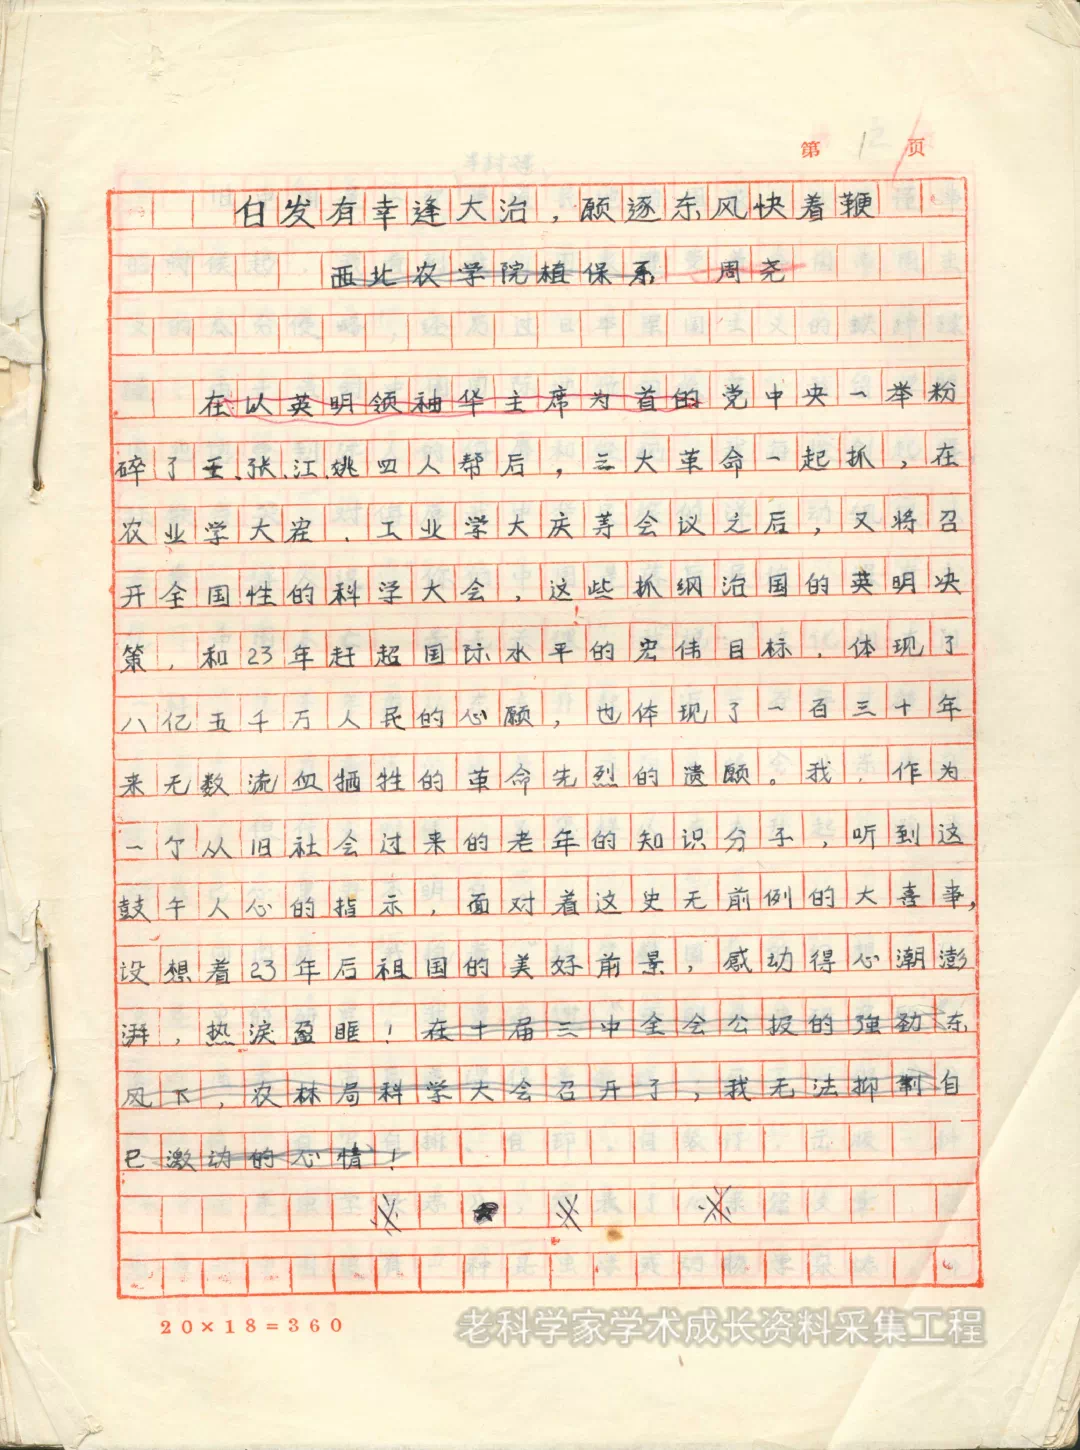 第 12 页
白发有幸逢大治，愿逐东风快着鞭
西北农学院植保系 周尧
在以英明领袖华主席为首的党中央一举粉
碎了王、张、江、姚四人帮后，三大革命一起抓，在
农业学大寨、工业学大庆等会议之后，又将召
开全国性的科学大会，这些抓纲治国的英明决
策，和23年赶超国际水平的宏伟目标，体现了
八亿五千万人民的心愿，也体现了一百三十年
来无数流血牺牲的革命先烈的遗愿。我，作为
一个从旧社会过来的老年的知识分子，听到这
鼓午人心的指示，面对着这史无前例的大喜事，
设想着23年后祖国的美好前景，感动得心潮澎
湃，热淚盈眶！在十届三中全会公报的强劲东
风下，农林局科学大会召开了，我无法抑制自
己激动的心情！
20×18=360
老科学家学术成长资料采集工程